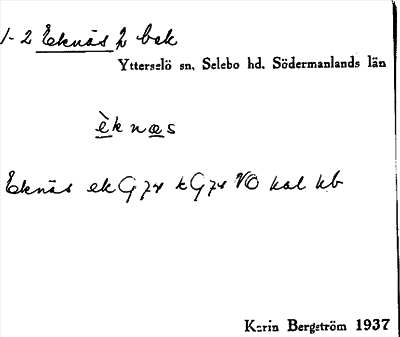 1-2 Eknäs 2 bek
Ytterselö sn. Selebo hd. Södermanlands län
èknæs
Eknäs ek G 74 k G 74 NO kal kb
Karin Bergström 1937